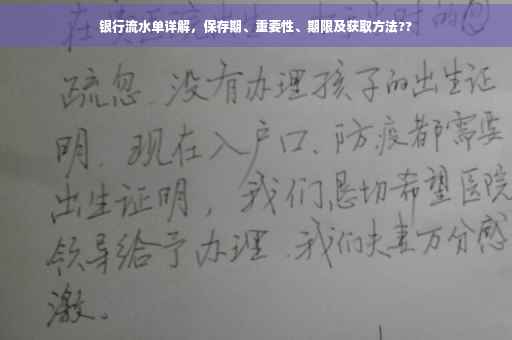 银行流水单详解，保存期、重要性、期限及获取方法??
疏忽.没有办理孩子的出生证
明.现在入户口、防疫都需要
出生证明，我们恳切希望医院
领导给予办理.我们夫妻万分感
激。